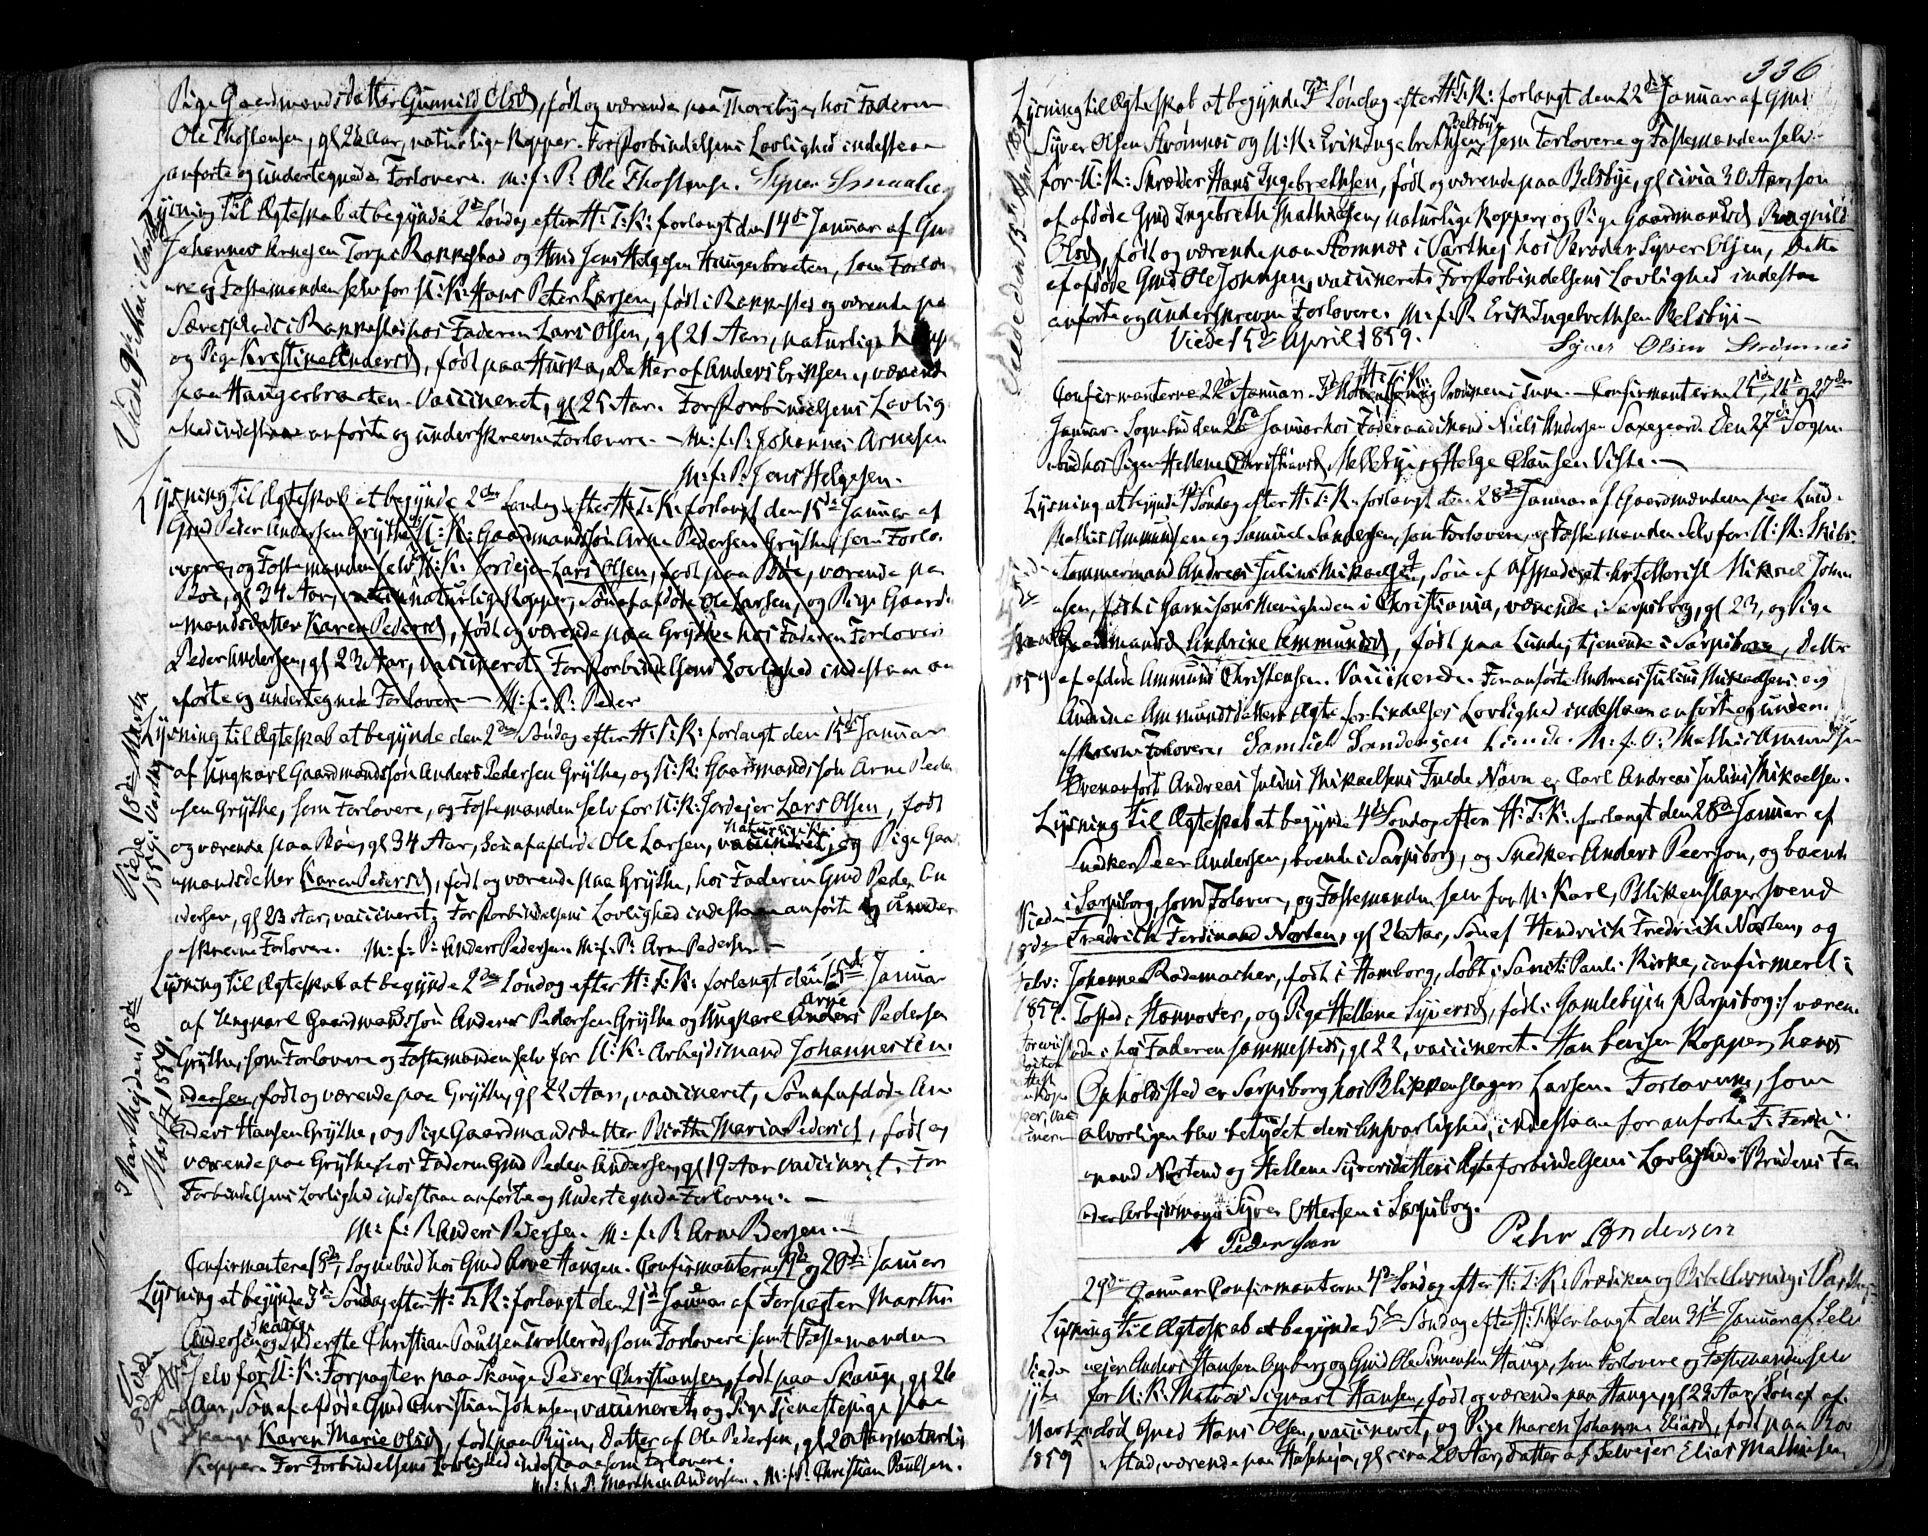 Pige Gaardmandsdatter Gunnild Olsd, født og værende paa Thorsbye, hos Faderen
Ole Thostensen, gl 26 Aar, naturlige Kopper. For Forbindelsens Lovlighed indestaae
anførte og undertegnede Forlovere. M: f: P: Ole Thostensen.
Lysning til Ægteskab at begynde 2d Søndag efter H: T: K: forlangt den 14de Januar af Gmd
Johannes Arnesen Torpe Rakkestad og Hmd Jens Helgesen Haugerbraaten, som Forlo-
vere og Fæstemanden selv for U: K: Hans Peter Larsen, født i Rakkestad og værende paa
i Rakkestad hos Faderen Lars Olsen, gl 21 Aar, naturlige Kopper
og Pige Kristine Andersd, født paa Hurka, Datter af Anders Eriksen, værende
paa Haugerbraaten. Vaccineret, gl 25 Aar. For Forbindelsens Lovlig-
hed indestaae anførte og underskrevne Forlovere. – M: f: P: Johannes Arnesen
M: f: P: Jens Helgesen.
Viede 9de Mai i Varteig
Lysning til Ægteskab at begynde 2den Søndag efter H: T: K: forlangt den 15de Januar af
Gmd Peder Andersen Grÿthe og U: K: Gaardmandssøn Arne Pedersen Grÿthe, som Forlo-
vere, og Fæstemanden selv U: K: Jordejer Lars Olsen, født paa Bøe, værende paa
Bøe, gl 34 Aar, naturlige Kopper, Søn af afdøde Ole Larsen, og Pige Gaard-
mandsdatter Karen Pedersd, født og værende paa Grÿthe hos Faderen Forlover
Peder Andersen, gl 23 Aar, vaccineret. For Forbindelsens Lovlighed indestaae an-
førte og undertegnede Forlovere – M: f: P: Peder
Lysning til Ægteskab at begynde den 2den Søndag efter H: T: K: forlangt den 15de Januar
af Ungkarl Gaardmandssøn Anders Pedersen Grÿthe, og U: K: Gaardmandssøn Arne Peder-
sen Grÿthe, som Forlovere, og Fæstemanden selv for U: K: Jordejer Lars Olsen, født
og værende paa Bøe, gl 34 Aar, Søn af afdøde Ole Larsen, vaccineret, og Pige Gaard-
mandsdatter Karen Pedersd, født og værende paa Grÿthe, hos Faderen Gmd Peder An-
dersen, gl 23 Aar, vaccineret. For Forbindelsens Lovlighed indestaae anførte og under-
skrevne Forlovere. M: f: P: Anders Pedersen M: f: P: Arne Pedersen –
Viede 18de Marts
1859 i Varteig
Lysning til Ægteskab at begynde 2den Søndag efter H: T: K: forlangt den 15de Januar
af Ungkarl Gaardmandssøn Anders Pedersen Grÿthe og Ungkarl Arne Pedersen
Grÿthe, som Forlovere og Fæstemanden selv for U: K: Arbejdsmand Johannes An-
dersen, født og værende paa Grÿthe, gl 22 Aar, vaccineret, Søn af afdøde An-
ders Hansen Grÿthe, og Pige Gaardmandsdatter Birthe Maria Pedersd, født og
værende paa Grÿthe hos Faderen Gmd Peder Andersen, gl 19 Aar vaccineret. For
Forbindelsens Lovlighed indestaae anførte og Undertegnede Forlovere. –
M: f: P: Anders Pedersen. M: f: P: Arne Pedersen. –
I Vartheig den 18de
Marts 1859.
Confirmantene 18de, Sognebud hos Gmd Arve Haugen. Confirmanterne 19de og 20de Januar
Lysning at begynde 3de Søndag efter H: T: K: forlangt den 21de Januar af Forpagter Marthin
Andersen Skauge og Inderste Christian Paulsen Trollerød, som Forlovere samt Fæstemanden
selv for U: K: Forpagter paa Skauge Peder Christiansen, født paa Skauge, gl 26
Aar, Søn af afdøde Gmd Christian Johnsen, vaccineret, og Pige Tjenestepige paa
Skauge Karen Marie Olsd, født paa Byen, Datter af Ole Pedersen, gl 20 Aar, naturlige
Kopper. For Forbindelsens Lovlighed indestaae som Forlovere.
M: f: P: Marthin Andersen. M: f: P: Christian Paulsen.
336
Lysning til Ægteskab at begynde 3de Søndag efter H: T: K: forlangt den 22de Januar af Gmd
Syver Olsen Strømnes og U: K: Erik Ingebrethsen Belsbye, som Forlovere og Fæstemanden selv
for U: K: Skræder Hans Ingebrethsen, født og værende paa Belsbye, gl circa 30 Aar, Søn
af afdøde Gmd Ingebreth Mathisen, naturlige Kopper, og Pige Gaardmandsd Ragnild
Olsd, født og værende paa Strømnes i Varthej hos Broder Syver Olsen, Datter
af afdøde Gmd Ole Johnsen, vaccineret. For Forbindelsens Lovlighed indestaae
anførte og underskrevne Forlovere. M: f: P: Erik Ingebrethsen Belsbye –
Viede 15de April 1859. Syver Olsen Strømnes
Confirmanterne 22de Januar. 3de Søndag H: T: K: Prædiken i Tune. – Confirmanterne 25de, 26de og 27de
Januar. Sognebud den 26de Januar hos Føderaadsmand Niels Andersen Saxegaard. Den 27de Sogne-
bud hos Pigen Hellene Christiansd, og Helge Clausen Viste. –
Lysning at begynde 4de Søndag efter H: T: K: forlangt den 28de Januar af Gaardmændene paa Lund-
Mathis Ammundsen og Samuel Sandersen, som Forlovere, og Fæstemanden selv for U: K: Skibs-
tømmermand Andreas Julius Mikaelsen, Søn af Mikael John-
sen, født i Garnisons Menigheden i Christiania, værende i Sarpsborg, gl 23, og Pige
Gaardmandsd Andrine Ammundsd, født paa Lunde, tjenende i Sarpsborg, Datter
af afdøde Ammund Christensen. Vaccinerede. For anførte Andreas Julius Mikaelsens og
Andrine Ammundsdatters Ægteforbindelses Lovlighed indestaae anførte og under-
skrevne Forlovere. Samuel Sandersen Lunde. M: f: P: Mathis Ammundsen
Ovenanførte Andreas Julius Mikaelsens Fulde Navn er Carl Andreas Julius Mikaelsen.
Lysning til Ægteskab at begynde 4de Søndag efter H: T: K: forlangt den 28de Januar af
Snedker Peer Andersen, boende i Sarpsborg, og Snedker Anders Peerson, og boende
i Sarpsborg, som Forlovere, og Fæstemanden selv for U: Karl, Blikkenslagersvend
Fredrich Ferdinand Norten, gl 26 Aar, Søn af Hendrich Fredrich Norten, og
Johanne Rademacher, født i Hamborg, døbt i Sancti Pauli Kirke, confirmeret i
Tosted i Hannover, og Pige Hellene Syversd, født i Gamlebyen p Sarpsborg, værende
hos Faderen sammesteds, gl 22, vaccineret. Han beviser Kopper, hans
Opholdssted er Sarpsborg hos Blikkenslager Larsen. Forloverne, som
alvorligen blev betydet deres Ansvarlighed, indestaae for anførte F. Ferdi-
nand Nortens og Hellene Syversdatters Ægteforbindelsens Lovlighed. Brudens Fa-
der Arbejdsmand Syver Ottersen i Sarpsborg.
A Pederson Pehr Anderson
Viede
18de
Febr:
1859.
29de Januar Confirmanterne 4de Søndag efter H: T: K: Prædiken og Bibellæsning i Varthejg
Lysning til Ægteskab at begynde 5te Søndag efter H: T: K: forlangt den 31te Januar af Selv-
ejer Anders Hansen Amberg og Gmd Ole Simensen Hauge, som Forlovere og Fæstemanden selv
for U: K: Matros Sigvart Hansen, født og værende paa Hauge, gl 29 Aar, Søn af af-
død Gmd Hans Olsen, vaccineret, og Pige Maren Johanne Eliasd, født paa
stad, værende paa, gl circa 20 Aar, Datter af Selvejer Elias Mathisen
Viede
Marts
1859